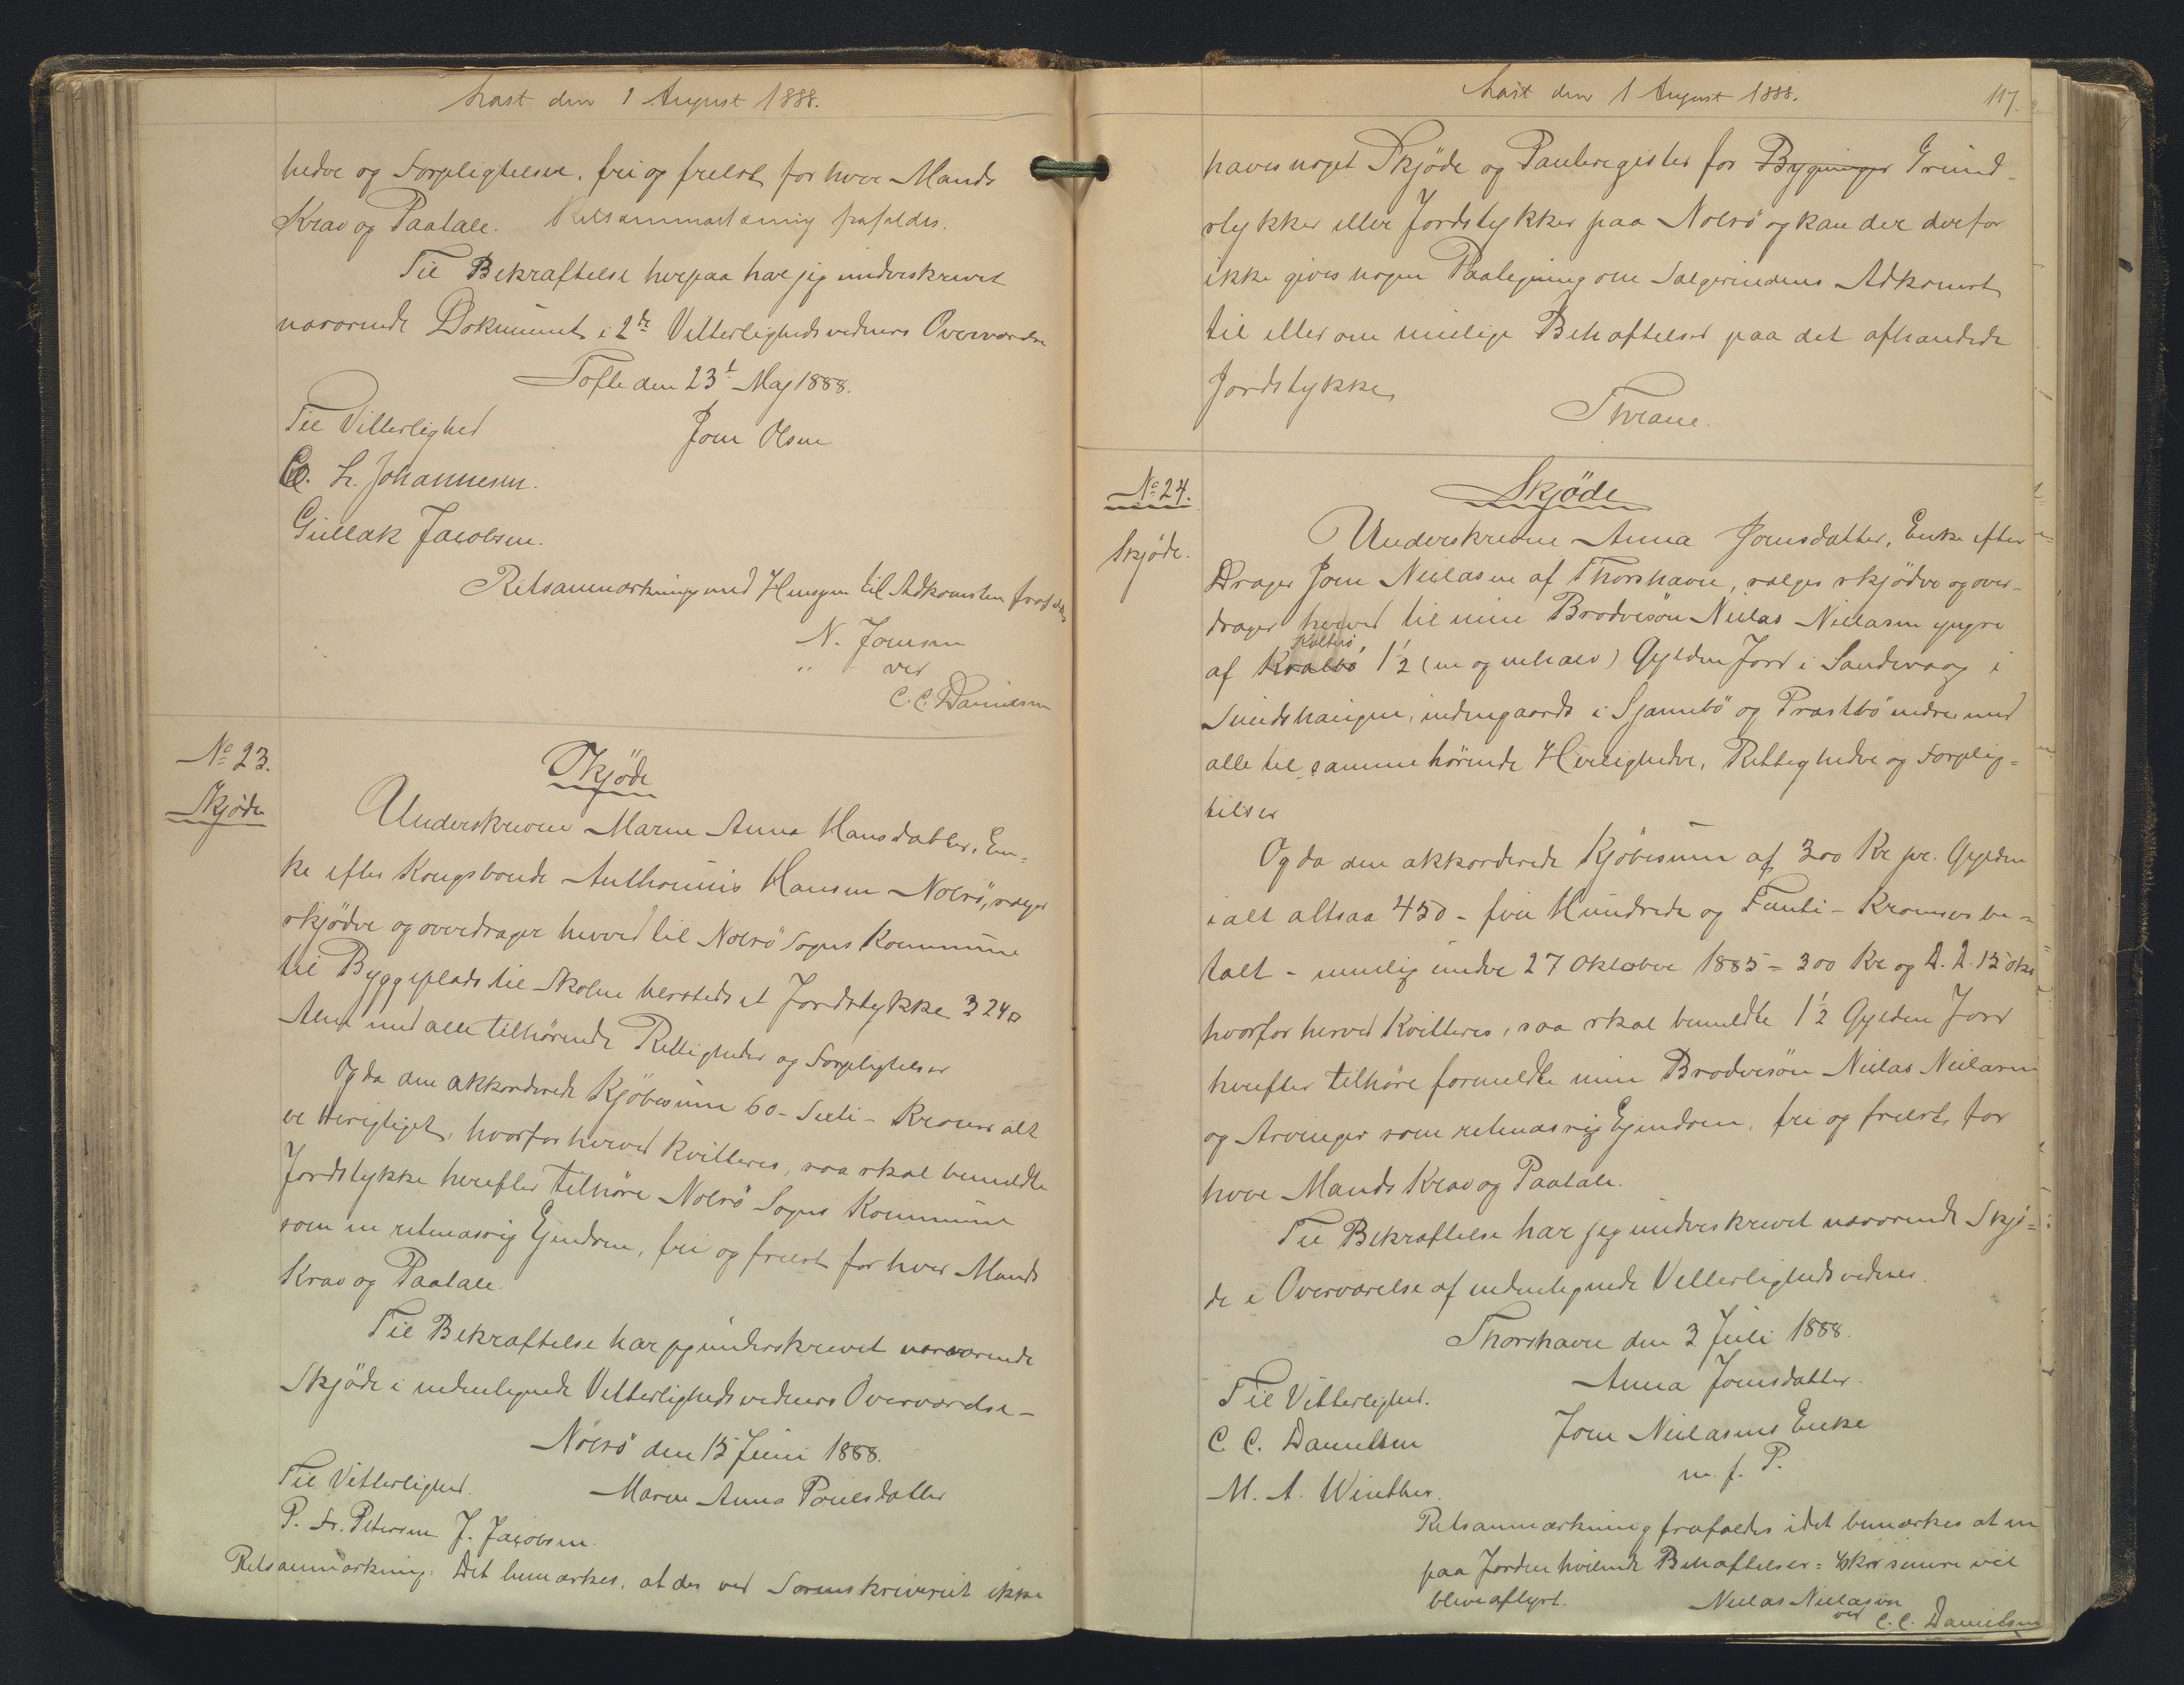 Læst den 1 August 1888.
heder og Forpligtelser, fri og frelst for hver Mands
Krav og Paatale. Retsanmærkning frafaldes.
Til Bekræftelse herpaa har jeg underskrevet
nærværende Dokument i 2de Vitterlighedsvidners Overværelse
Tofte den 23d Maj 1888.
Til Vitterlighed Joen Olsen
H. Johannesen.
Gullak Jacobsen.
Retsanmærkning med Hensyn til Adkomsten frafaldes
N. Joensen
" ved
C. C. Danielsen
No 23.
Skjøde
Skjøde
Underskrevne Maren Anna Hansdatter, En=
ke efter Kongsbonde Anthonius Hansen Nolsö, sælger
skjöder og overdrager herved til Nolsö Sogns Kommune
til Byggeplads til Skolen hersteds et Jordstykke 324 □
Alen med alle tilhörende Rettigheder og Forpligtelser
Og da den akkorderede Kjöbesum 60 - Sexti - Kroner alt
er berigtiget, hvorfor herved kvitteres, saa skal bemeldte
Jordstykke herefter tilhöre Nolsö Sogns Kommune
som en retmæssig Ejendom, fri og frelst for hver Mands
Krav og Paatale.
Til Bekræftelse har jeg underskrevet nærværende
Skjöde i nedentegnede Vitterlighedsvidners Overværelse -
Nolsö den 15 Juni 1888.
Til Vitterlighed. Maren Anna Poulsdatter
P. Fr. Petersen J. Jacobsen.
Retsanmærkning: Det bemærkes, at der ved Sorenskriveriet ikke
Læst den 1 August 1888. 117.
haves noget Skjöde og Panteregister for Bygninger Grund-
stykker eller Jordstykker paa Nolsö og kan der derfor
ikke gives nogen Paategning om Sælgerindens Adkomst
til eller om mulige Behæftelser paa det afhændede
Jordstykke
Thrane.
No 24.
Skjöde.
Skjöde
Underskrevne Anna Joensdatter, Enke efter
Drager Joen Nielasen af Thorshavn, sælger skjöder og over-
drager herved til min Brodersön Nielas Nielasen yngre
Koltur
af 1½ (en og en halv) Gylden Jord i Sandevaag i
Sundshaugen, indengaards i Sjanebö og Præstbö nedre med
alle til samme hörende Herligheder, Rettigheder og Forplig=
telser
Og da den akkorderede Kjöbesum af 300 Kr pr. Gylden
ialt altsaa 450 - fire Hundrede og Femti - Kroner er be=
talt - nemlig under 27 Oktober 1885 = 300 Kr og D. D. 150 Kr
hvorfor herved kvitteres, saa skal bemeldte 1½ Gylden Jord
herefter tilhöre formeldte min Brodersön Nielas Nielasen
og Arvinger som retmæssig Ejendom, fri og frelst for
hver Mands Krav og Paatale.
Til Bekræftelse har jeg underskrevet nærværende Skjö=
de i Overværelse af nedentegnede Vitterlighedsvidner.
Thorshavn den 3 Juli 1888.
Til Vitterlighed. Anna Joensdatter.
C. C. Danielsen Joen Nielasens Enke
M. A. Winther. m. f. P.
Retsanmærkning frafaldes idet bemærkes at en
paa Jorden hvilende Behæftelser = senere vil
blive aflyst. Nielas Nielasen
ved C. C. Danielsen